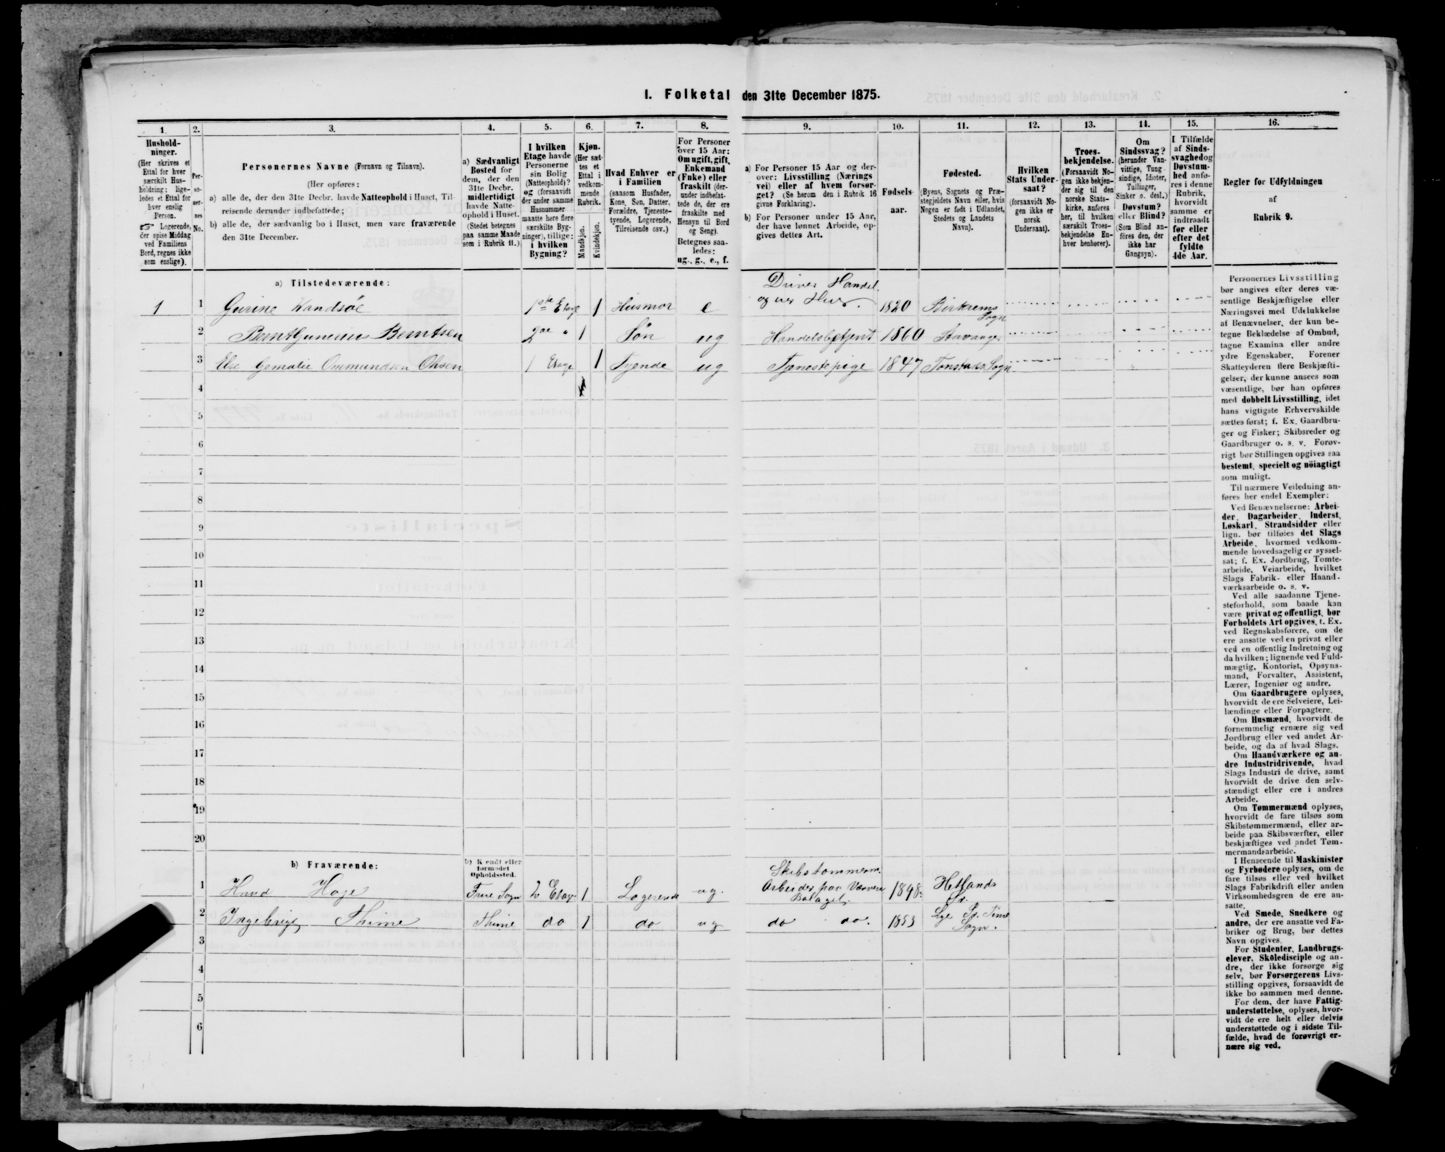 1. Folketal den 31te December 1875.
1. 2. 3. 4. 5. 6. 7. 8. 9. 10. 11. 12. 13. 14. 15. 16.
Hushold-
ninger.
(Her skrives et
Ettal for hver
særskilt Hus-
holdning; lige-
ledes et Ettal for
hver enslig
Person.
☞ Logerende,
der spise Middag
ved Familiens
Bord, regnes ikke
som enslige).
Per-
so-
ner-
nes
No.
Personernes Navne (Fornavn og Tilnavn).
(Her opføres:
a) alle de, der den 31te Decbr. havde Natteophold i Huset, Til-
reisende derunder indbefattede;
b) alle de, der sædvanlig bo i Huset, men vare fraværende
den 31te December.
a) Sædvanligt
Bosted for
dem, der den
31te Decbr.
midlertidigt
havde Natte-
ophold i Huset.
(Stedet betegnes
paa samme Maade
som i Rubrik 11.)
I hvilken
Etage havde
Personerne
sin Bolig
(Natteophold)?
og (forsaavidt
der under samme
Husnummer
maatte høre flere
særskilte Byg-
ninger), tillige:
i hvilken
Bygning?
Kjøn.
(Her sæt-
tes et
Ettal i
vedkom-
mende
Rubrik.
Mandkjøn.
Kvindekjøn.
Hvad Enhver er
i Familien
(saasom Husfader,
Kone, Søn, Datter,
Forældre, Tjeneste-
tyende, Logerende,
Tilreisende osv.)
For Personer
over 15 Aar:
Om ugift, gift,
Enkemand
(Enke) eller
fraskilt (der-
under indbefat-
tede de, der ere
fraskilte med
Hensyn til Bord
og Seng).
Betegnes saa-
ledes:
ug., g., e., f.
a) For Personer 15 Aar og der-
over: Livsstilling (Nærings
vei) eller af hvem forsør-
get? (Se herom den i Rubrik 16
givne Forklaring).
b) For Personer under 15 Aar,
der have lønnet Arbeide, op-
gives dettes Art.
Fødsels-
aar.
Fødested.
(Byens, Sognets og Præ-
stegjeldets Navn eller, hvis
Nogen er født i Udlandet,
Stedets og Landets
Navn).
Hvilken
Stats Under-
saat?
(forsaavidt No-
gen ikke er
norsk
Undersaat).
Troes-
bekjendelse.
(Forsaavidt No-
gen ikke bekjen-
der sig til den
norske Stats-
kirke, anføres
her, til hvilken
særskilt Troes-
bekjendelse En-
hver henhører).
Om
Sindssvag?
(herunder Van-
vittige, Tung
sindige, Idioter,
Tullinger,
Sinker o. desl.)
Døvstum?
eller Blind?
(Som Blind an-
føres den, der
ikke har
Gangsyn).
I Tilfælde
af Sinds-
svaghed og
Døvstum-
hed anfø-
res i denne
Rubrik,
hvorvidt
samme er
indtraadt
før eller
efter det
fyldte
4de Aar.
Regler for Udfyldningen
af
Rubrik 9.
a) Tilstedeværende:
1 1 1ste Etage 1 Husmor e Driver Handel 1820 Sogn
2 Bemtsen 2den " 1 Søn ug Handelsbetjent 1860 Stavanger
3 Else Ommundsen 1 Etage 1 Tyende ug Tjenestepige 1847 Sogn
4
5
6
7
8
9
10
11
12
13
14
15
16
17
18
19
20
b) Fraværende:
b) Kjendt eller
formodet
Opholdssted.
1 Sogn 2 Etage 1 Logerende ug. Skibstømmerm. Arbeider paa Hetlands
2 Thime Thime do 1 do ug do do. 1853 Sogn.
3
4
5
6
Personernes Livsstilling
bør angives efter deres væ-
sentlige Beskjæftigelse eller
Næringsvei med Udelukkelse
af Benævnelser, der kun be-
tegne Beklædelse af Ombud,
tagne Examina eller andre
ydre Egenskaber. Forener
Skatteyderen flere Beskjæfti-
gelser, der kunne ansees som
væsentlige, bør han opføres
med dobbelt Livsstilling, idet
hans vigtigste Erhvervskilde
sættes først; f. Ex. Gaardbru-
ger og Fisker; Skibsreder og
Gaardbruger o. s. v. Forøv-
rigt bør Stillingen opgives saa
bestemt, specielt og nøiagtigt
som muligt.
Til nærmere Veiledning an-
føres her endel Exempler:
Ved Benævnelserne: Arbei-
der, Dagarbeider, Inderst,
Løskarl, Strandsidder eller
lign. bør tilføies det Slags
Arbeide, hvormed vedkom-
mende hovedsagelig er syssel-
sat; f. Ex. Jordbrug, Tomte-
arbeide, Veiarbeide, hvilket
Slags Fabrik- eller Haand-
værksarbeide o. s. v.
Ved alle saadanne Tjene-
steforhold, som baade kan
være privat og offentligt, bør
Forholdets Art opgives, t. Ex.
ved Regnskabsførere, om de
ere ansatte ved en privat eller
ved en offentlig Indretning og
da hvilken; lignende ved Fuld-
mægtig, Kontorist, Opsyns-
mand, Forvalter, Assistent,
Lærer, Ingeniør og andre.
Om Gaardbrugere oplyses,
hvorvidt de ere Selveiere, Lei-
lændinge eller Forpagtere.
Om Husmænd, hvorvidt de
fornemmelig ernære sig ved
Jordbrug eller ved andet Ar-
beide, og da af hvad Slags.
Om Haandværkere og an-
dre Industridrivende, hvad
Slags Industri de drive, samt
hvorvidt de drive den selv-
stændigt eller ere i andres
Arbeide.
Om Tømmermænd oplyses,
hvorvidt de fare tilsøs som
Skibstømmermænd, eller ar-
beide paa Skibsværfter, eller
beskjæftiges ved andet Tøm-
mermandsarbeide.
I Henseende til Maskinister
og Fyrbødere oplyses, om de
fare tilsøs eller ved hvilket
Slags Fabrikdrift eller anden
Virksomhedsgren de ere an-
satte.
Ved Smede, Snedkere og
andre, der ere ansatte ved Fa-
briker og Brug, bør dettes
Navn opgives.
For Studenter, Landbrugs-
elever, Skoledisciple og an-
dre, der ikke forsørge sig
selv, bør Forsørgerens Livs-
stilling opgives, forsaavidt de
ikke bo sammen med denne.
For dem, der have Fattig-
understøttelse, oplyses, hvor-
vidt de ere helt eller delvis
understøttede og i sidste Til-
fælde, hvad de forøvrigt er-
nære sig ved.